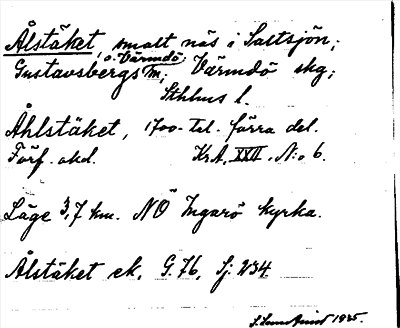 Ålstäket, smalt näs i Saltsjön;
o. Värmdö
Gustavsbergs fm; Värmdö skg;
Sthlms l.
Åhlstäket, 1700-tal. förra del.
Förf. okd. Kr.A. XXII, N:o 6.
Läge 3,7 km. NÖ Ingarö kyrka.
Ålstäket ek. G. 76, Sj: 234
1925.